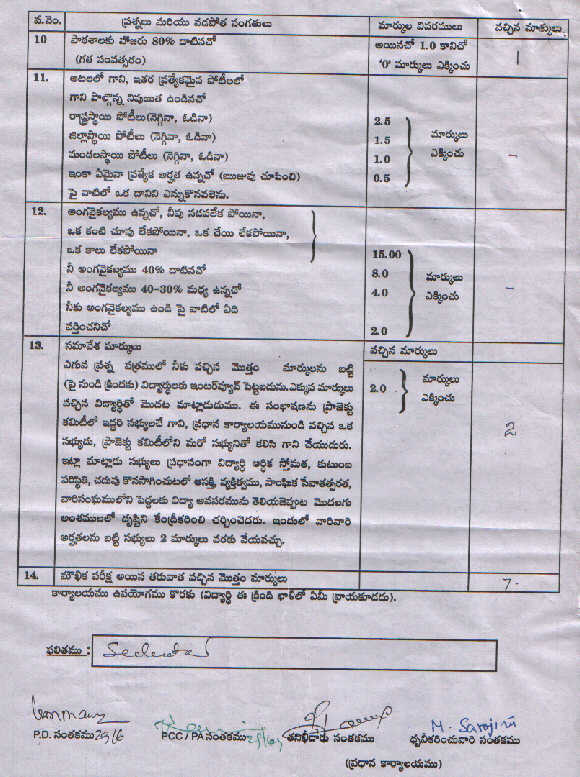 వ.నెం. ప్రశ్నలు మరియు నడపోత సంగతులు మార్కుల వివరములు వచ్చిన మార్కులు
10 పాఠశాలకు హాజరు 80% దాటినచో అయినచో 1.0 కానిచో 1
(గత సంవత్సరం) '0' మార్కులు ఎక్కించు
11. ఆటలలో గాని, ఇతర ప్రత్యేకమైన పోటీలలో
గాని పాల్గొన్న నిపుణత ఉండినచో
రాష్ట్రస్థాయి పోటీలు (నెగ్గినా, ఓడినా) 2.5 మార్కులు
జిల్లాస్థాయి పోటీలు (నెగ్గినా, ఓడినా) 1.5 ఎక్కించు
మండలస్థాయి పోటీలు (నెగ్గినా, ఓడినా) 1.0 -
ఇంకా ఏమైనా ప్రత్యేక అర్హత ఉన్నచో (ఋజువు చూపించి) 0.5
పై వాటిలో ఒక దానిని ఎన్నుకొనవలెను.
12. అంగవైకల్యము ఉన్నచో, నీవు నడవలేక పోయినా,
ఒక కంటి చూపు లేకపోయినా, ఒక చేయి లేకపోయినా,
ఒక కాలు లేకపోయినా 15.00
నీ అంగవైకల్యము 40% దాటినచో 8.0 మార్కులు
నీ అంగవైకల్యము 40-30% మధ్య ఉన్నచో 4.0 ఎక్కించు -
నీకు అంగవైకల్యము ఉండి పై వాటిలో ఏది
వర్తించనిచో 2.0
13. సమావేశ మార్కులు వచ్చిన మార్కులు
ఎగువ ప్రశ్న పత్రములో నీకు వచ్చిన మొత్తం మార్కులను బట్టి
(పై నుండి క్రిందకు) విద్యార్థులకు ఇంటర్వ్యూకై పెట్టబడును. ఎక్కువ మార్కులు 2.0 మార్కులు
వచ్చిన విద్యార్థితో మొదట మాట్లాడుదుము. ఈ సంభాషణను ప్రాజెక్టు ఎక్కించు
కమిటీలో ఇద్దరి సభ్యులచే గాని, ప్రధాన కార్యాలయమునుండి వచ్చిన ఒక
సభ్యుడు, ప్రాజెక్టు కమిటీలోని మరో సభ్యునితో కలిసి గాని చేయుదురు. 2
ఇట్లా మాట్లాడు సభ్యులు ప్రధానంగా విద్యార్థి ఆర్థిక స్తోమత, కుటుంబ
పరిస్థితి, చదువు కొనసాగించుటలో ఆసక్తి, వ్యక్తిత్వము, సాంఘిక సేవాతత్పరత,
వారిసంఘములోని పెద్దలకు విద్యా అవసరమును తెలియజెప్పుట మొదలగు
అంశములలో దృష్టిని కేంద్రీకరించి చర్చించెదరు. ఇందులో వారివారి
అర్హతలను బట్టి సభ్యులు 2 మార్కులు వరకు వేయవచ్చు.
14. మౌఖిక పరీక్ష అయిన తరువాత వచ్చిన మొత్తం మార్కులు 7-
కార్యాలయము ఉపయోగము కొరకు (విద్యార్థి ఈ క్రింది భాగంలో ఏమీ వ్రాయకూడదు).
ఫలితము : Selected
M. Sarojini
P.D. సంతకము PCC / PA సంతకము తనిఖీదారు సంతకము ధృవీకరించువారి సంతకము
(ప్రధాన కార్యాలయము)